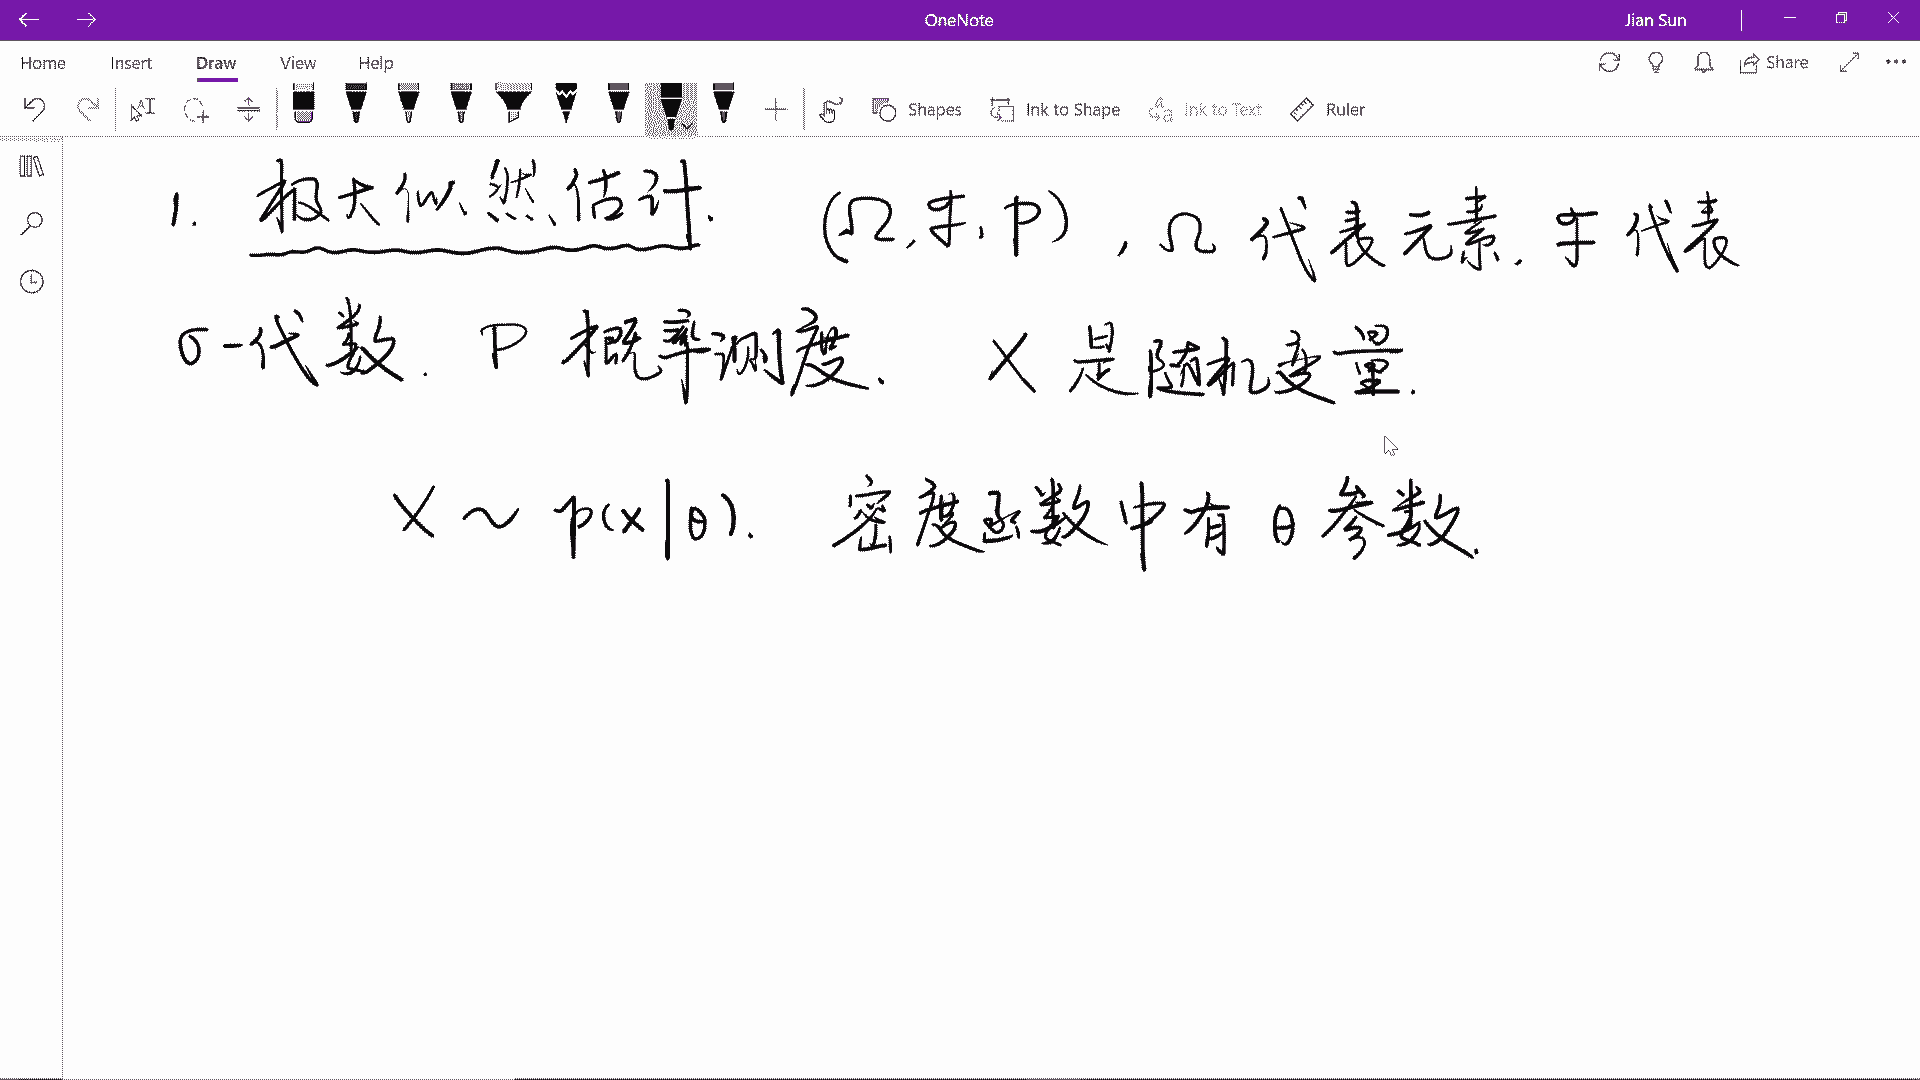 OneNote
Jian Sun
Home Insert Draw View Help
Share
Shapes Ink to Shape Ink to Text Ruler
1. 极大似然估计. (Ω, ℱ, P), Ω 代表元素. ℱ 代表
σ-代数. P 概率测度. X 是随机变量.
X ~ p(x|θ). 密度函数中有 θ 参数.